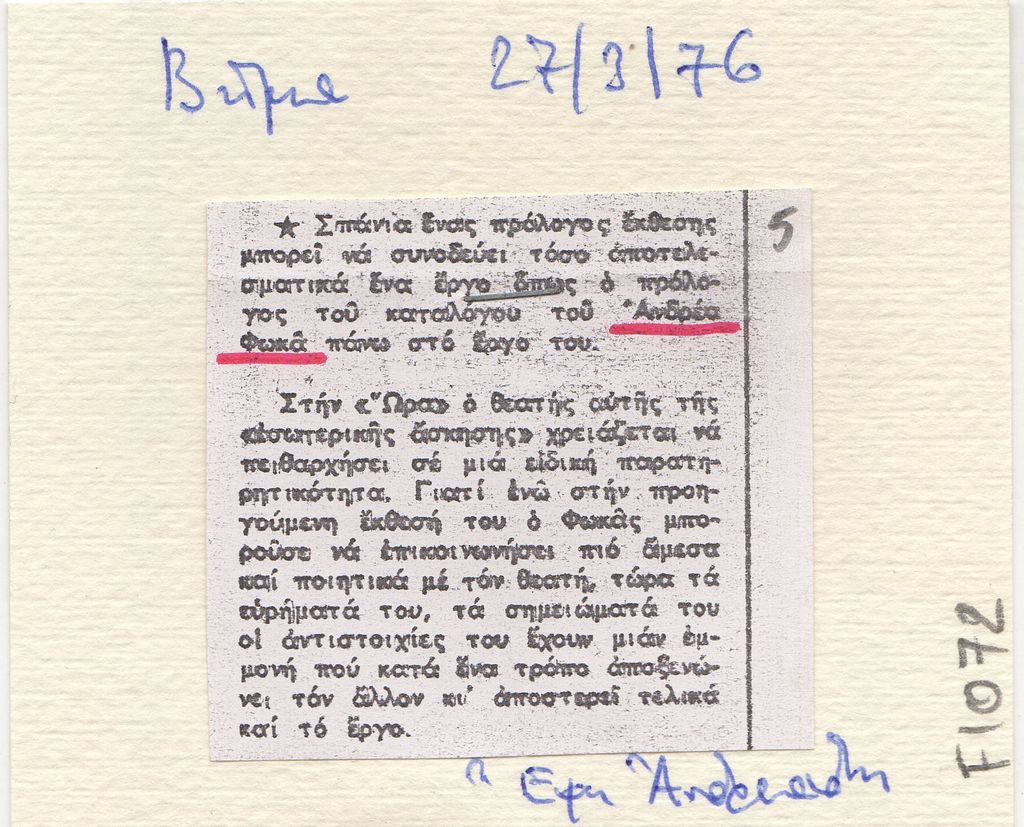 Βῆμα 27/3/76
5
★ Σπάνια ἕνας πρόλογος ἔκθεσης
μπορεῖ νά συνοδεύει τόσο ἀποτελε-
σματικά ἕνα ἔργο ὅπως ὁ πρόλο-
γος τοῦ καταλόγου τοῦ Ἀνδρέα
Φωκᾶ πάνω στό ἔργο του.
Στήν «Ὥρα» ὁ θεατής αὐτῆς τῆς
«ἐσωτερικῆς ἄσκησης» χρειάζεται νά
πειθαρχήσει σέ μιά εἰδική παρατη-
ρητικότητα. Γιατί ἐνῶ στήν προη-
γούμενη ἔκθεσή του ὁ Φωκᾶς μπο-
ροῦσε νά ἐπικοινωνήσει πιό ἄμεσα
καί ποιητικά μέ τόν θεατή, τώρα τά
εὑρήματά του, τά σημειώματά του
οἱ ἀντιστοιχίες του ἔχουν μιάν ἐμ-
μονή πού κατά ἕνα τρόπο ἀποξενώ-
νει τόν ἄλλον κι' ἀποστερεῖ τελικά
καί τό ἔργο.
Ἔφη Ἀνδρεάδη
F1072